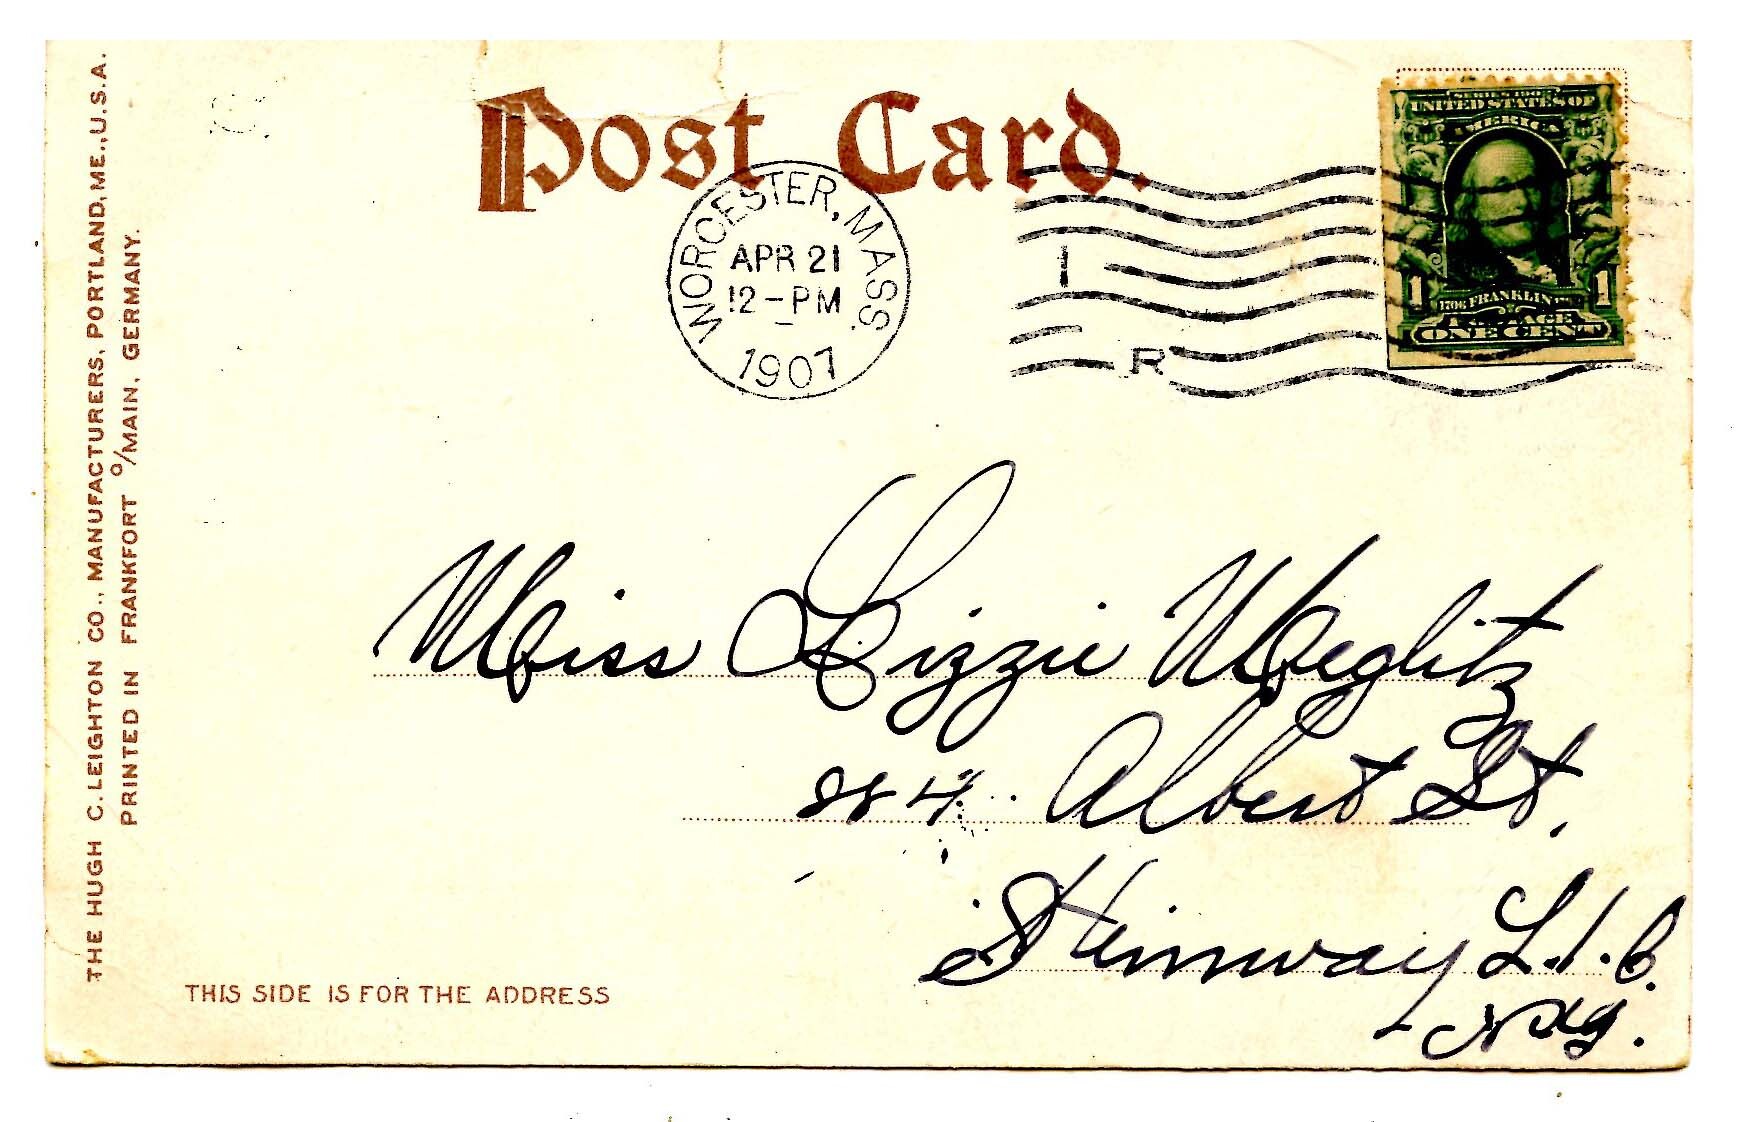 THE HUGH C. LEIGHTON CO., MANUFACTURERS, PORTLAND, ME., U.S.A.
PRINTED IN FRANKFORT O/MAIN, GERMANY.
Post Card.
WORCESTER, MASS.
APR 21
12-PM
1907
1
R
SERIES 1902
UNITED STATES OF
AMERICA
1 1
1706 FRANKLIN
POSTAGE
ONE CENT
Miss Lizzie Meglitz
Albert St.
Steinway L.I.C.
THIS SIDE IS FOR THE ADDRESS